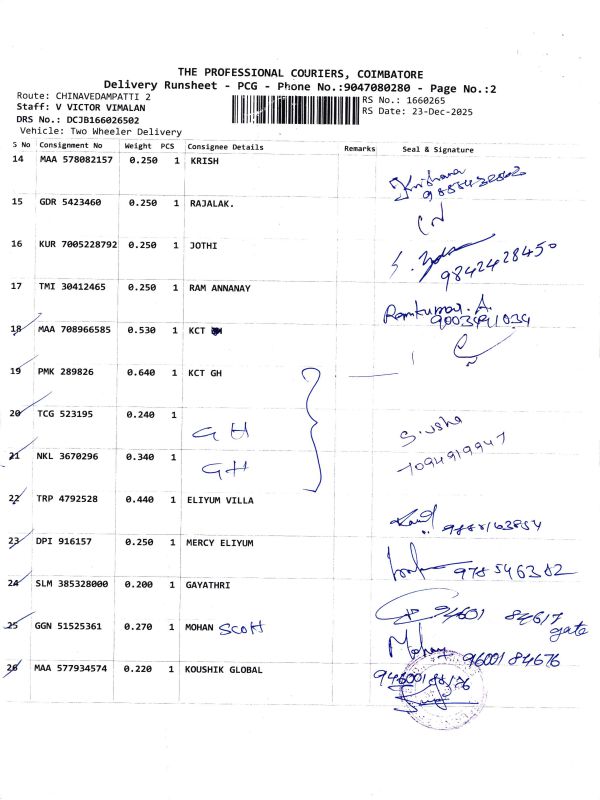 THE PROFESSIONAL COURIERS, COIMBATORE
Delivery Runsheet - PCG - Phone No.:9047080280 - Page No.:2
Route: CHINAVEDAMPATTI 2
Staff: V VICTOR VIMALAN
DRS No.: DCJB166026502
Vehicle: Two Wheeler Delivery
RS No.: 1660265
RS Date: 23-Dec-2025
S No Consignment No Weight PCS Consignee Details Remarks Seal & Signature
14 MAA 578082157 0.250 1 KRISH
15 GDR 5423460 0.250 1 RAJALAK.
16 KUR 7005228792 0.250 1 JOTHI 9842428450
17 TMI 30412465 0.250 1 RAM ANNANAY Ramkumar. A.
9003491034
18 MAA 708966585 0.530 1 KCT
19 PMK 289826 0.640 1 KCT GH
20 TCG 523195 0.240 1 GH S. Usha
21 NKL 3670296 0.340 1 GH 7094919947
22 TRP 4792528 0.440 1 ELIYUM VILLA
23 DPI 916157 0.250 1 MERCY ELIYUM 978546382
24 SLM 385328000 0.200 1 GAYATHRI 94601 84617
gate
25 GGN 51525361 0.270 1 MOHAN SCOTT Mohan 9600184676
26 MAA 577934574 0.220 1 KOUSHIK GLOBAL